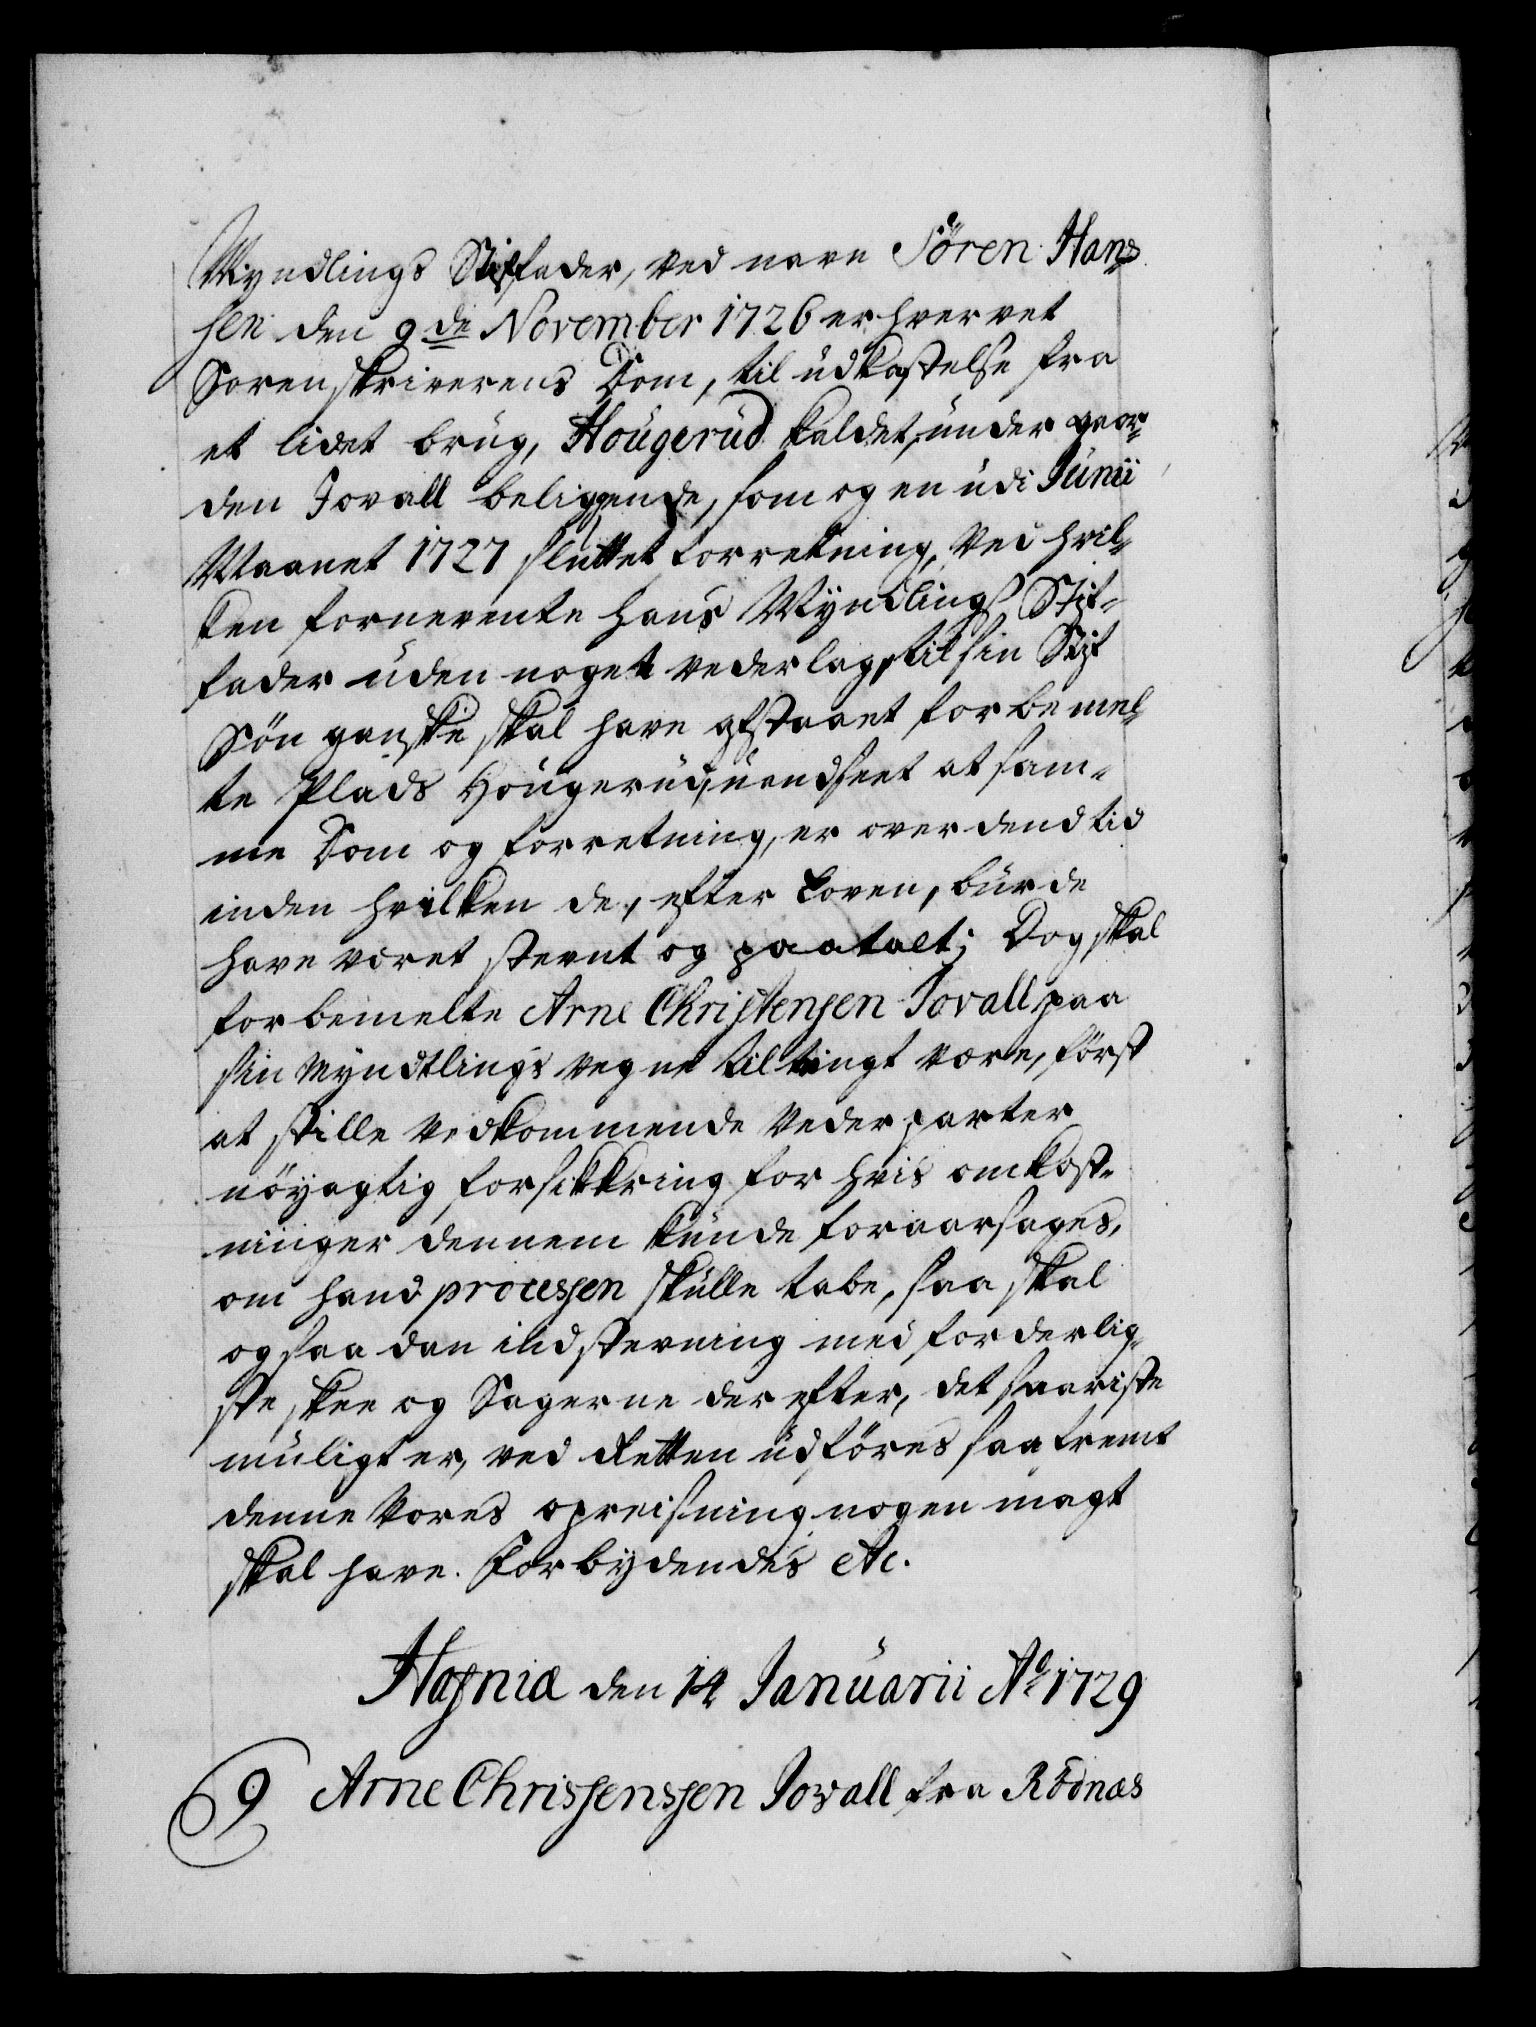 Myndlings Stiffader, ved navn Sören Han-
sen den 9de November 1726 erhvervet
Sorenskriverens Dom, til udkastelse fra
et lidet brüg, Hoügerüd kaldet, ünder gaar-
den Jovall beliggende, som og en üdi Junii
Maanet 1727 slüttet forretning, ved hvil-
ken fornevente hans Myndlings Stif-
fader uden noget vederlag, til sin Stif
Søn ganske skal have afstaaet forbemel-
te Plads Hoügerüd, üendseet at sam-
me Dom og forretning, er over dend tid
inden hvilken de, efter Loven, bürde
have veret stevnt og paatalt; Dog skal
forbemelte Arne Christensen Jovall paa
sin Myndtlings vegne tiltengt vere, först
at stille vedkommende Vederparter
nöyagtig forsikkring for hvis omkost-
ninger dennem künde foraarsages,
om hand processen skülle tabe, saa skal
og saadan indstevning med forderlig-
ste skee og Sagerne der efter, det snariste
müligt er, ved Retten üdföres saafremt
denne Vores opreisning nogen magt
skal have. Forbydendes etc.
Hafniæ den 14 Januarii Ao 1729
9 Arne Chrissenssen Jovall fra Rödnæs